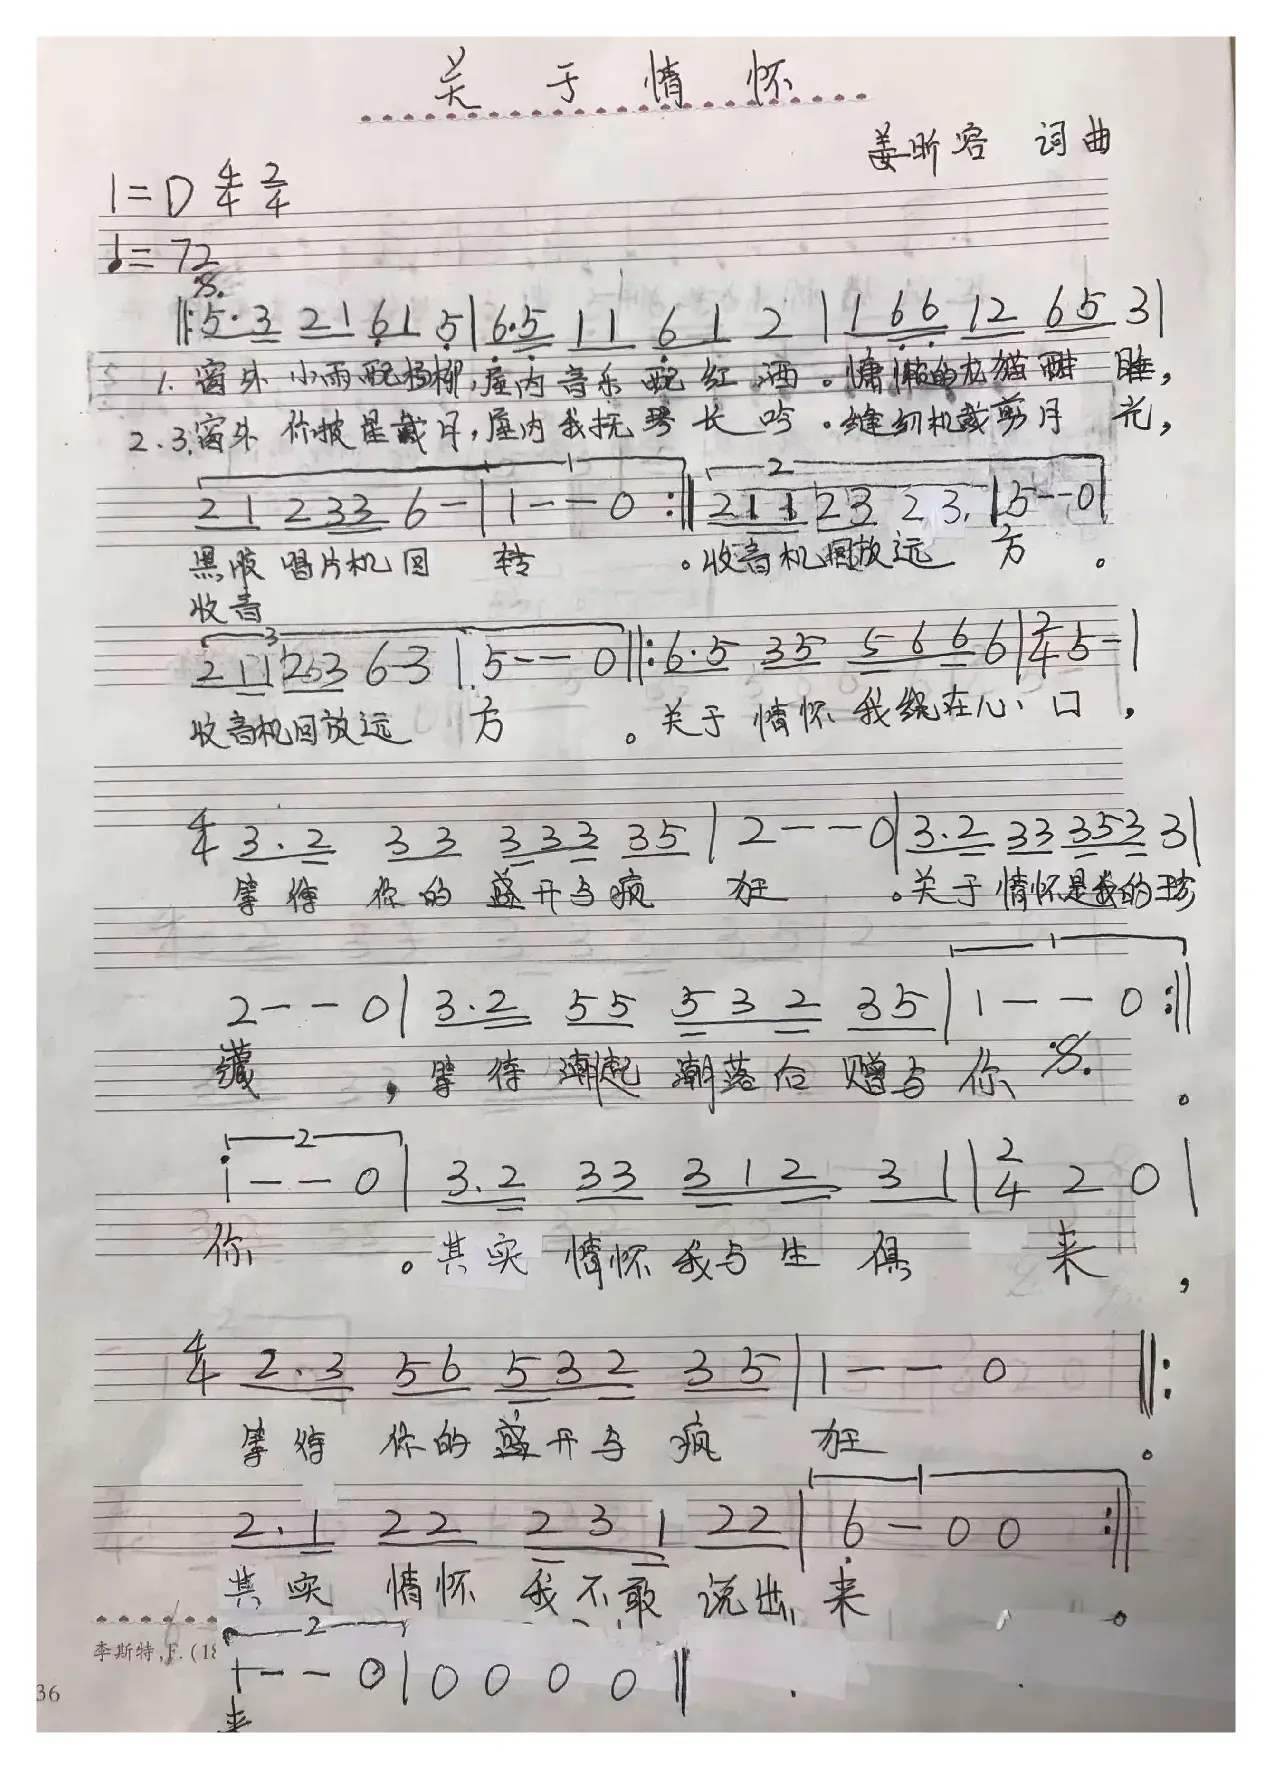 关于情怀
姜昕容 词曲
1=D 4/4 2/4
♩=72
𝄋
‖:5·3 21 61 5|6·5 11 61 2|1 66 12 65 3|
1.窗外小雨配杨柳,屋内音乐配红酒。慵懒的龙猫酣睡,
2.3.窗外你披星戴月,屋内我抚琴长吟。缝纫机裁剪月光,
1
21 233 6-|1--0:‖
2
211 23 23.|5--0|
黑胶唱片机回转。收音机回放远方。
收音
3
211 253 6-3|5--0‖:6·5 35 5666|2/4 5-|
收音机回放远方。关于情怀我绕在心口,
4/4 3.2 33 333 35|2---0|3.2 33 353 3|
等待你的盛开与疯狂。关于情怀是我的珍
1
2--0|3.2 55 532 35|1--0:‖
藏,等待潮起潮落后赠与你𝄋。
2
i--0|3.2 33 312 31|2/4 20|
你。其实情怀我与生俱来,
4/4 2.3 56 532 35|1--0‖:
等待你的盛开与疯狂。
1
2.1 22 231 22|6-00:‖
其实情怀我不敢说出来。
2
李斯特,F.(18
1--0|0000‖
36
来